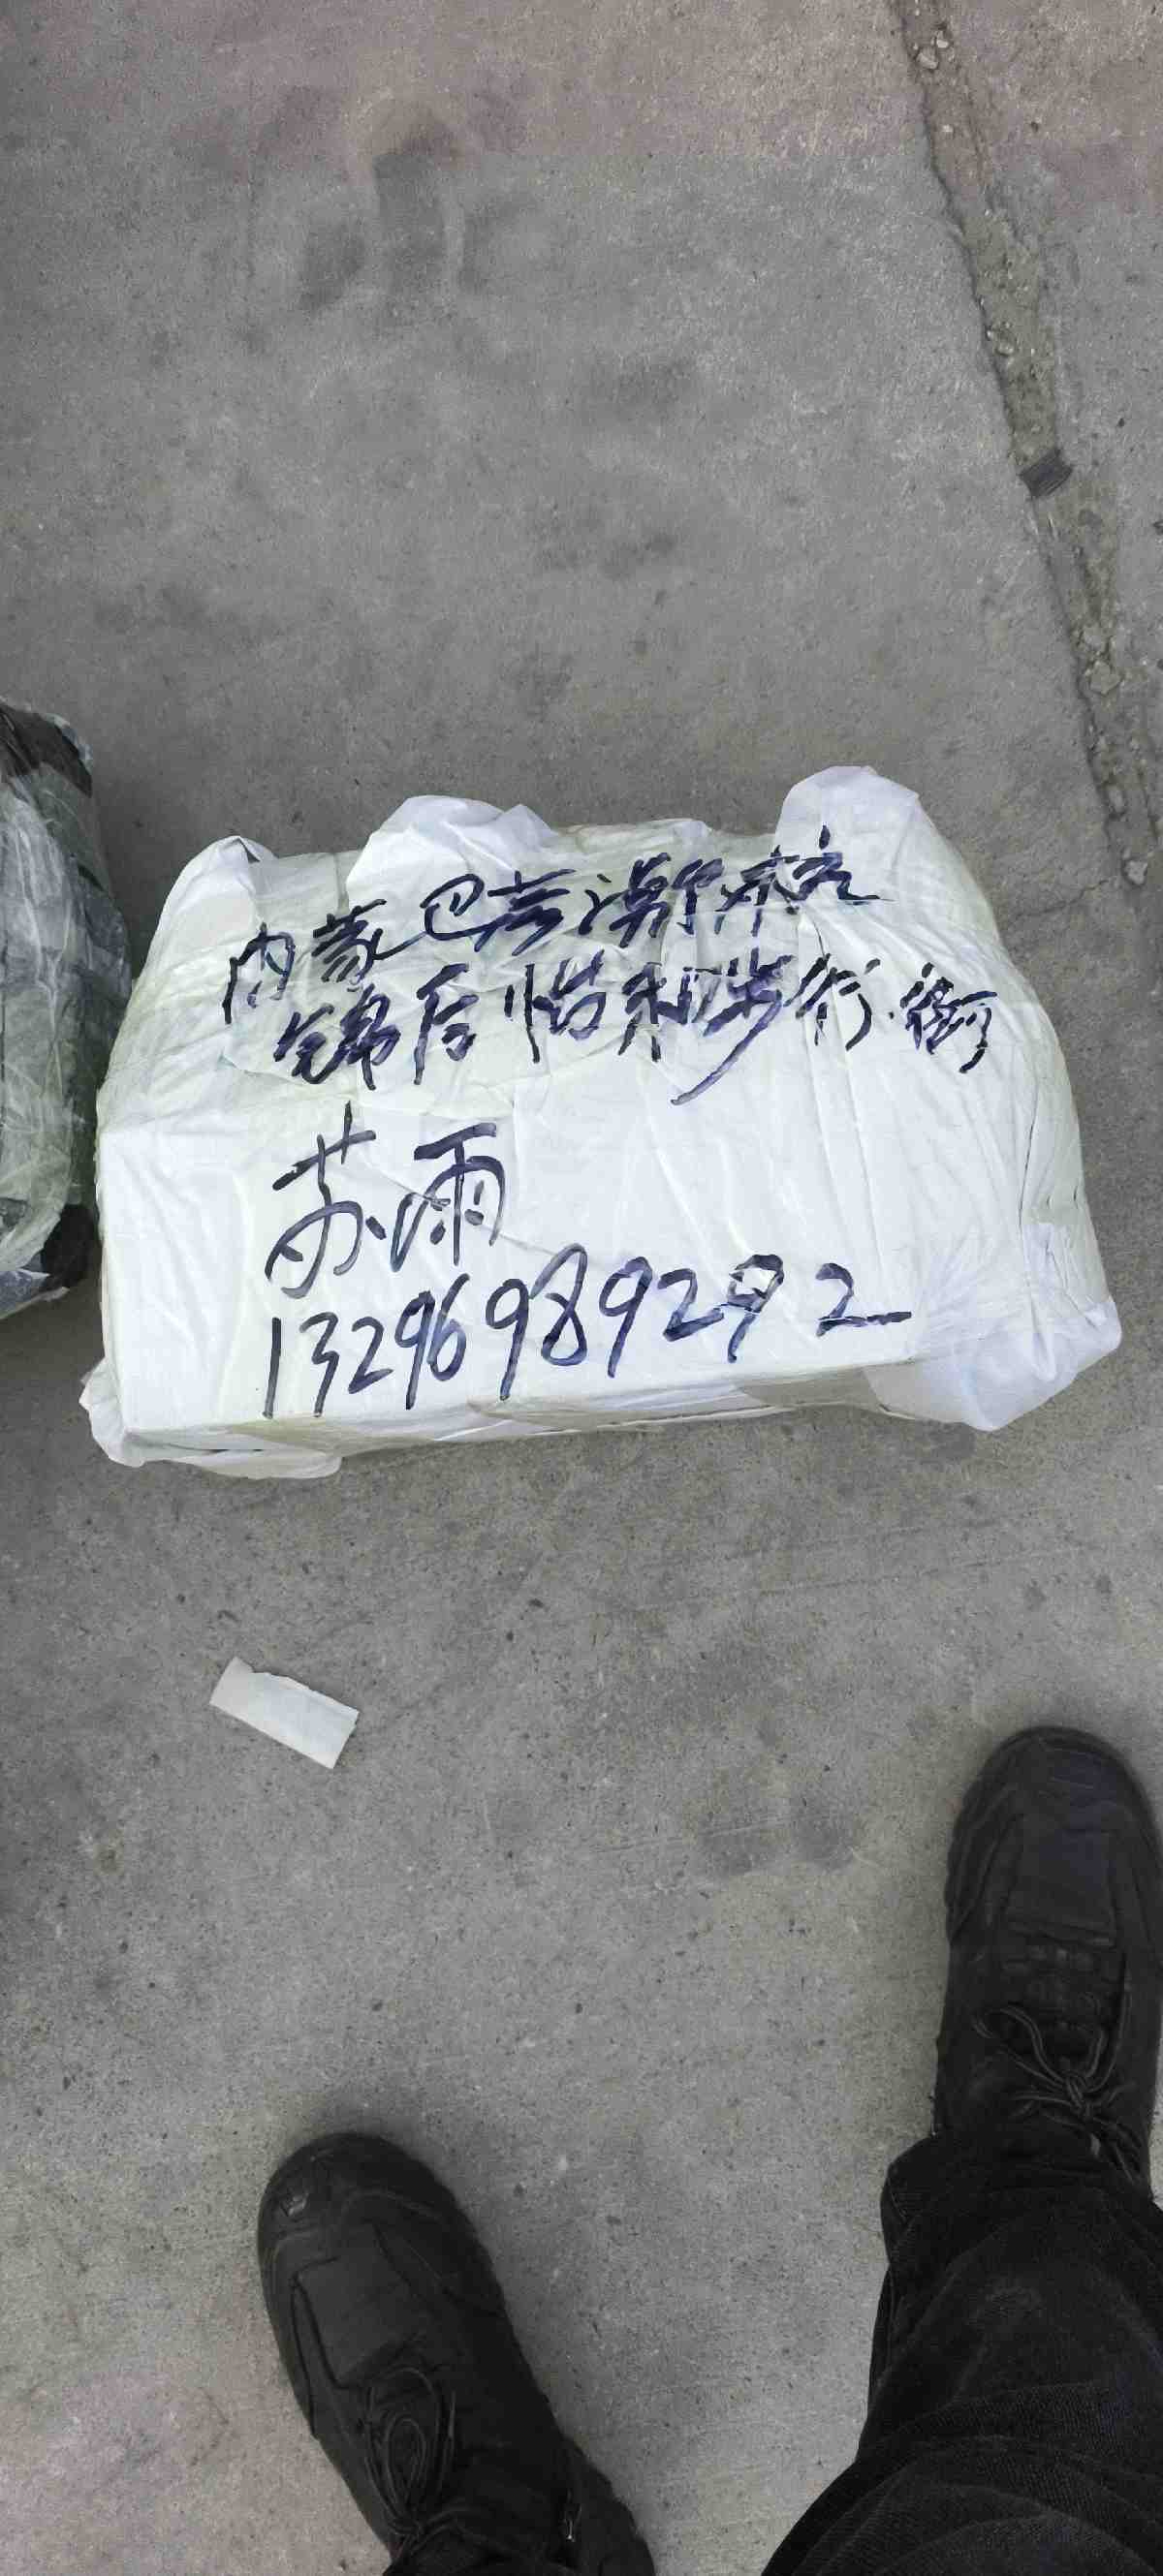 内蒙巴彦淖尔市
锦后怡和步行街
苏雨
13296989292